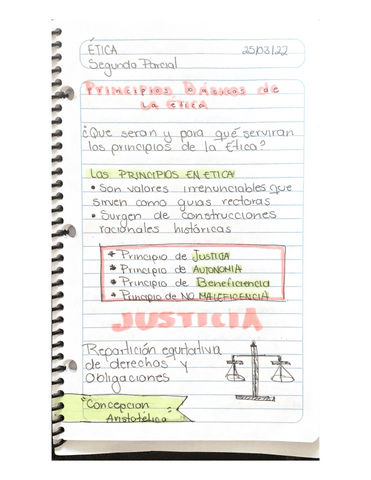 ÉTICA 25/03/22
Segundo Parcial
Principios Básicos de
La ética
¿Que seran y para qué serviran
los principios de la Etica?
LOS PRINCIPIOS EN ETICA
• Son valores irrenunciables que
sirven como guias rectoras
• Surgen de construcciones
racionales históricas
* Principio de JUSTICIA
* Principio de AUTONOMIA
* Principio de Beneficiencia
* Principio de NO MALEFICENCIA
JUSTICIA
Repartición equitativa
de derechos y
Obligaciones
"Concepcion
Aristotélica